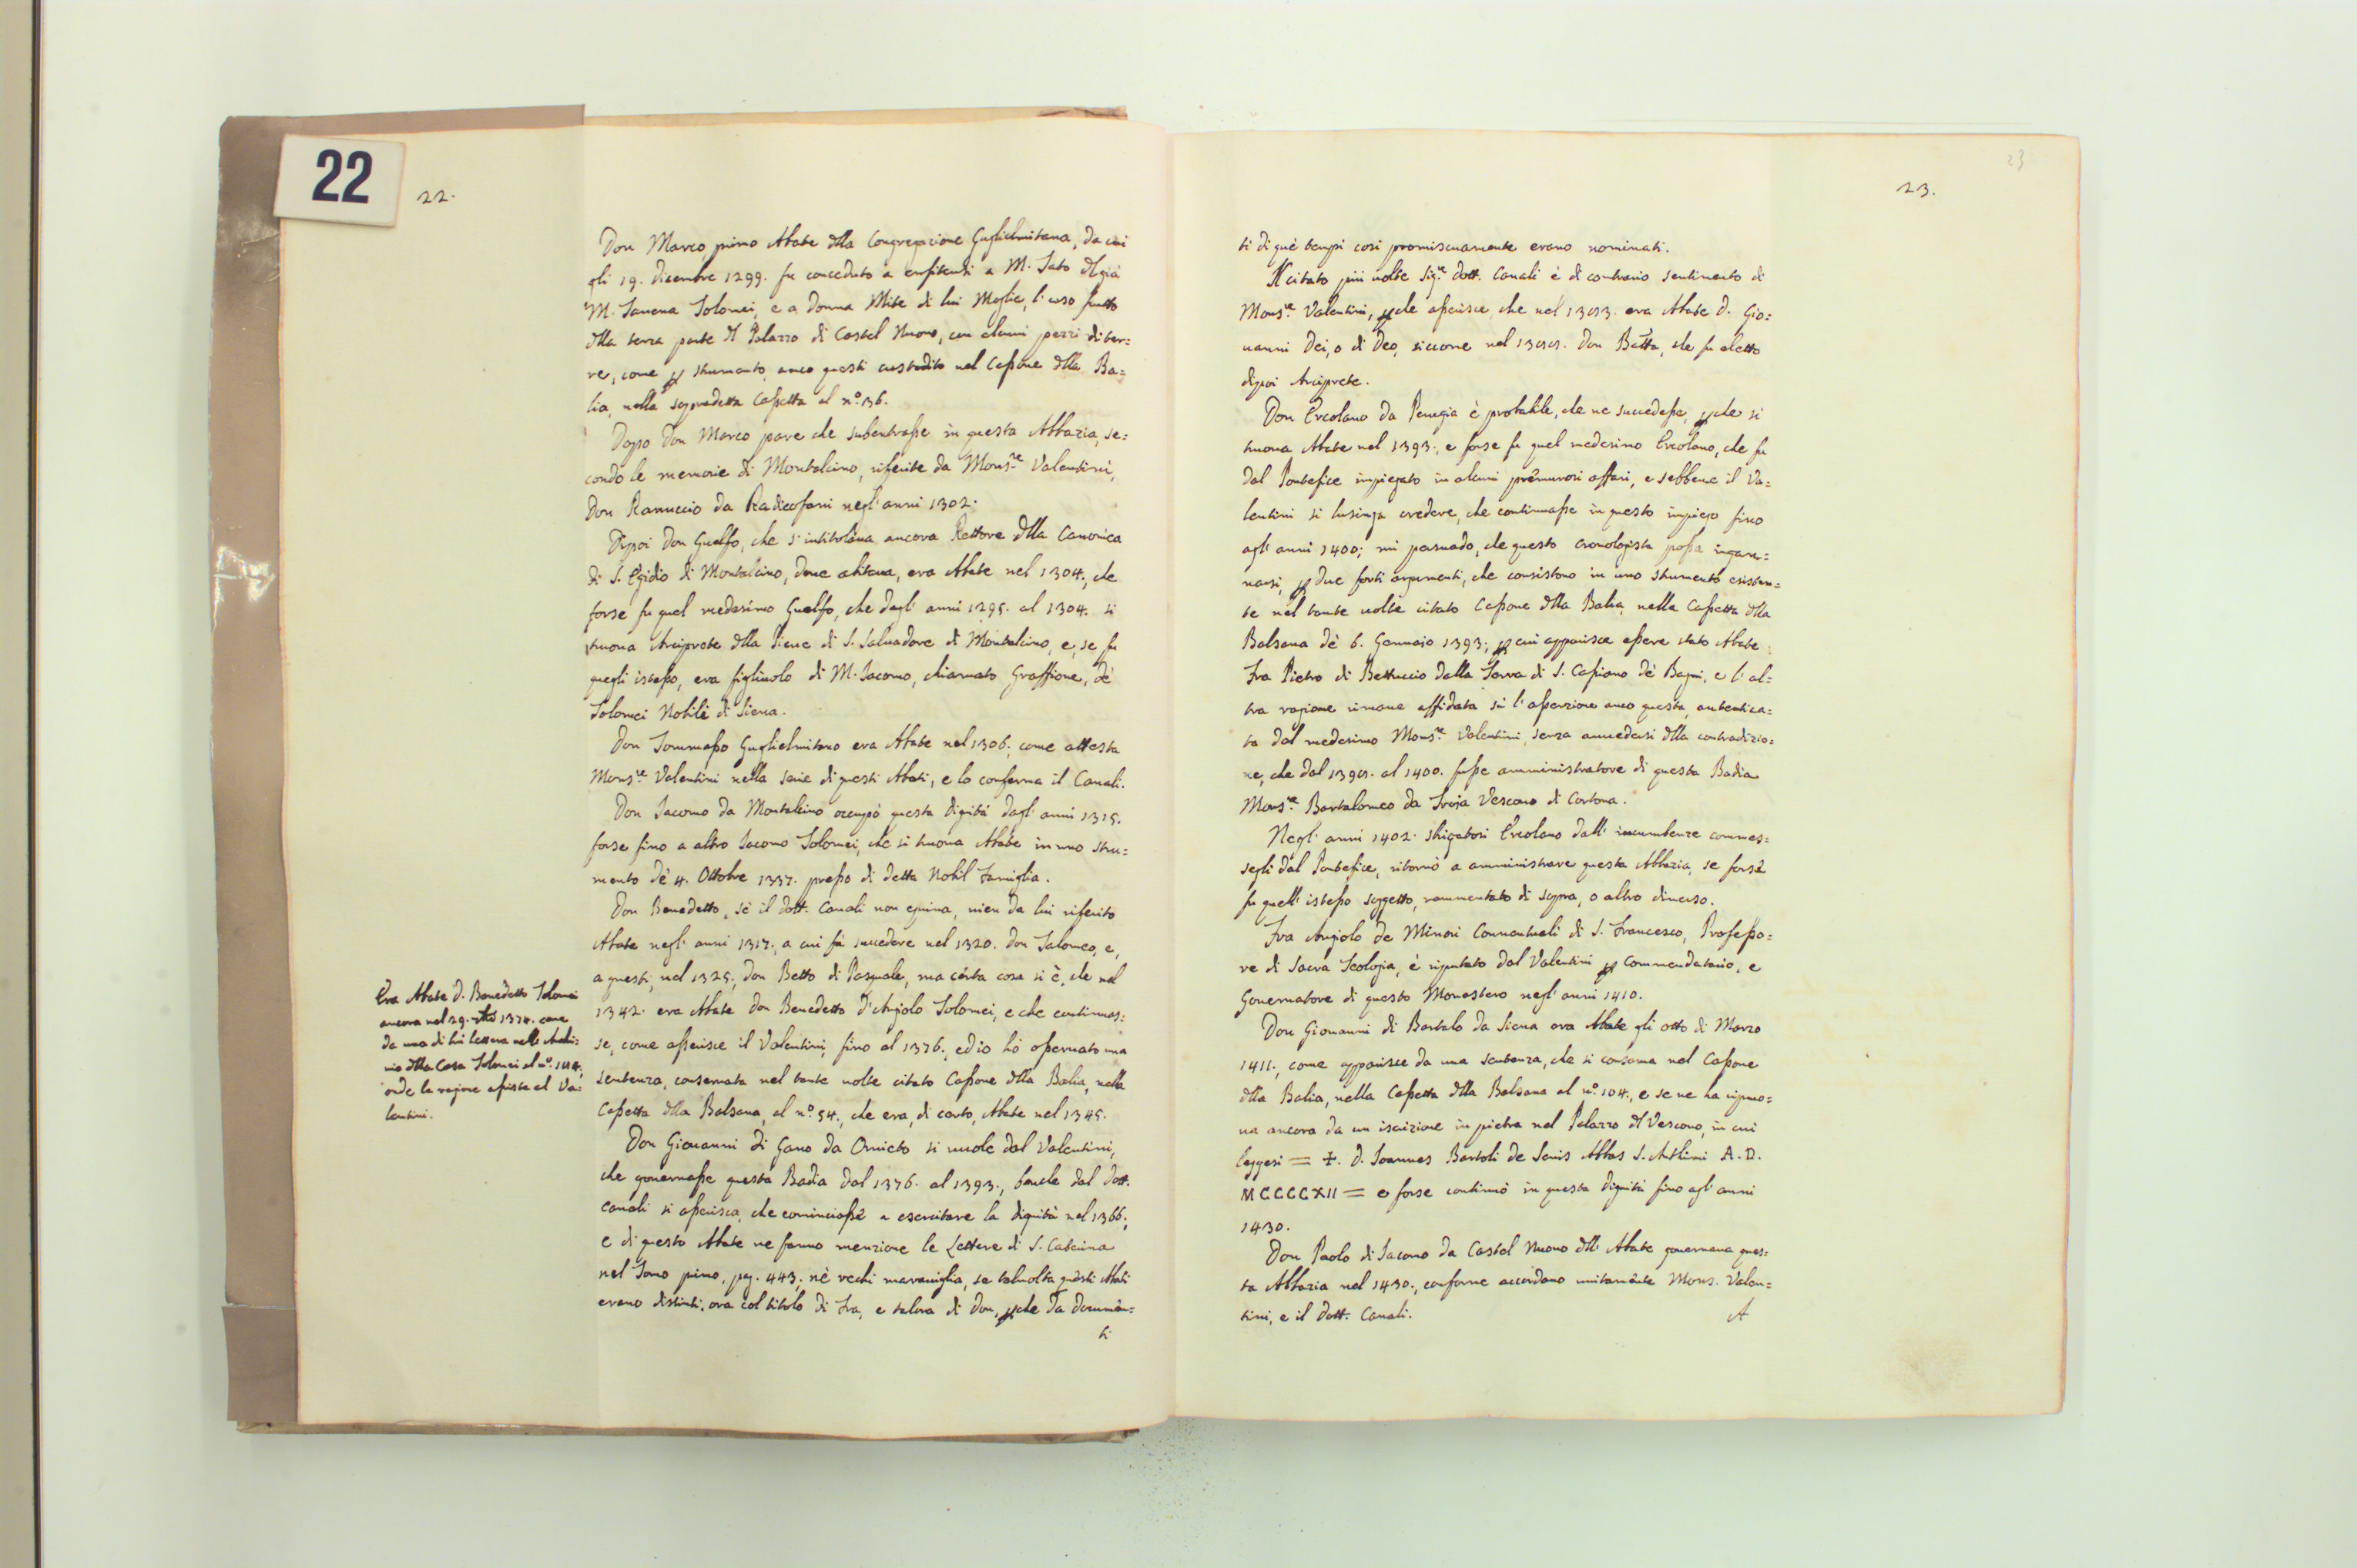 22
22.
Don Marco primo Abate dlla Congregazione Guglielmitana, da cui
gli 19. dicembre 1299. fu conceduto a enfiteusi a M. Tato dl già
M. Tauena Tolomei, e a Donna Mite di lui Moglie, l'uso frutto
dlla terza parte dl Palazzo di Castel Nuovo, con alcuni pezzi di ter=
re, come p strumento, anco questi custodito nel Cassone dlla Ba=
lia, nella sopradetta Cassetta al n.º 136.
Dopo Don Marco pare che subentrasse in questa Abbazia, se=
condo le memorie di Montalcino, riferite da Mons.re Valentini,
Don Ranuccio da Radicofani negl'anni 1302.
Dipoi Don Guelfo, che s'intitolaua ancora Rettore dlla Canonica
di S. Egidio di Montalcino, doue abitaua, era Abate nel 1304., che
forse fu quel medesimo Guelfo, che dagl'anni 1295. al 1304. si
truoua Arciprete dlla Pieue di S. Saluadore di Montalcino, e, se fu
quegli istesso, era figliuolo di M. Iacomo, chiamato Graffione, dè
Tolomei Nobili di Siena.
Don Tommasso Guglielmitano era Abate nel 1306; come attesta
Mons.re Valentini nella serie di questi Abati, e lo conferma il Canali.
Don Iacomo da Montalcino occupò questa dignità dagl'anni 1315.
forse fino a altro Iacomo Tolomei, che si truoua Abate in uno stru=
mento dè 4. Ottobre 1337. presso di detta Nobil Famiglia.
Don Benedetto, se il dott. Canali non equiua, uien da lui riferito
Abate negl'anni 1317., a cui fà succedere nel 1320. Don Taloneo, e,
a questi, nel 1325., Don Betto di Pasquale, ma certa cosa si è, che nel
1342. era Abate Don Benedetto d'Angiolo Tolomei, e che continuas=
se, come asserisce il Valentini, fino al 1376., ed io hò osseruato una
sentenza, conseruata nel tante uolte citato Cassone dlla Balia, nella
Cassetta dlla Balzana, al n.º 54., che era, di certo, Abate nel 1345.
Don Giouanni di Gano da Oruieto si uuole dal Valentini,
che gouernasse questa Badia dal 1376. al 1393., benche dal dott.
Canali si asserisca, che cominciasse a esercitare la dignità nel 1366.,
e di questo Abate ne fanno menzione le Lettere di S. Caterina
nel Tomo primo, pag. 443; nè rechi marauiglia, se talnolta questi Abati
erano distinti, ora col titolo di Fra, e talora di Don, pche da documen=
ti
Era Abate D. Benedetto Tolomei
ancora nel 29. 1374. come
da una di lui lettera nell'Archi=
uio dlla Casa Tolomei al n.º
onde la ragione assiste al Va=
lentini.
23
23.
ti di què tempi così promiscuamente erano nominati.
Il citato più uolte Sig.re dott. Canali è di contrario sentimento di
Mons.re Valentini, pche asserisce, che nel era Abate D. Gio=
uanni Dei, o di Deo, siccome nel Don Batta, che fu eletto
dipoi Arciprete.
Don Ercolano da Perugia è probabile, che ne succedesse, pche si
truoua Abate nel 1393., e forse fu quel medesimo Ercolano, che fu
dal Pontefice impiegato in alcuni premurosi affari, e sebbene il Va=
lentini si lusinga credere, che continuasse in questo impiego fino
agl'anni 1400; mi persuado, che questo cronologista possa ingan=
narsi, p due forti argumenti, che consistono in uno strumento esisten=
te nel tante uolte citato Cassone dlla Balia, nella Cassetta dlla
Balzana dè 6. Gennaio 1393., p cui apparisce essere stato Abate
Fra Pietro di Bettuccio dalla Serra di S. Cassiano dè Bagni, e l'al=
tra ragione rimane affidata sù l'asserzione, anco questa, autentica=
ta dal medesimo Mons.re Valentini, senza auuedersi dlla contradizio=
ne, che dal al 1400. fusse amministratore di questa Badia
Mons.re Bartolomeo da Troia Vescouo di Cortona.
Negl'anni 1402. strigatosi Ercolano dall'incumbenze commes=
segli dal Pontefice, ritornò a amministrare questa Abbazia, se forse
fu quell'istesso soggetto, rammentato di sopra, o altro diuerso.
Fra Angiolo de Minori Conuentuali di S. Francesco, Professo=
re di Sacra Teologia, è riputato dal Valentini p Commendatario, e
Gouernatore di questo Monastero negl'anni 1410.
Don Giouanni di Bartolo da Siena era Abate gli otto di Marzo
1411., come apparisce da una sentenza, che si conserua nel Cassone
dlla Balia, nella Cassetta dlla Balzana al n.º 104., e se ne ha ripruo=
ua ancora da un iscrizione in pietra nel Palazzo dl Vescouo, in cui
leggesi = ✝. D. Ioannes Bartoli de Senis Abbas S. Anthimi A. D.
MCCCCXII = e forse continuò in questa dignità fino agl'anni
1430.
Don Paolo di Iacomo da Castel Nuouo dll'Abate gouernaua ques=
ta Abbazia nel 1430., conforme accordano unitamente Mons. Valen=
tini, e il dott. Canali.
A